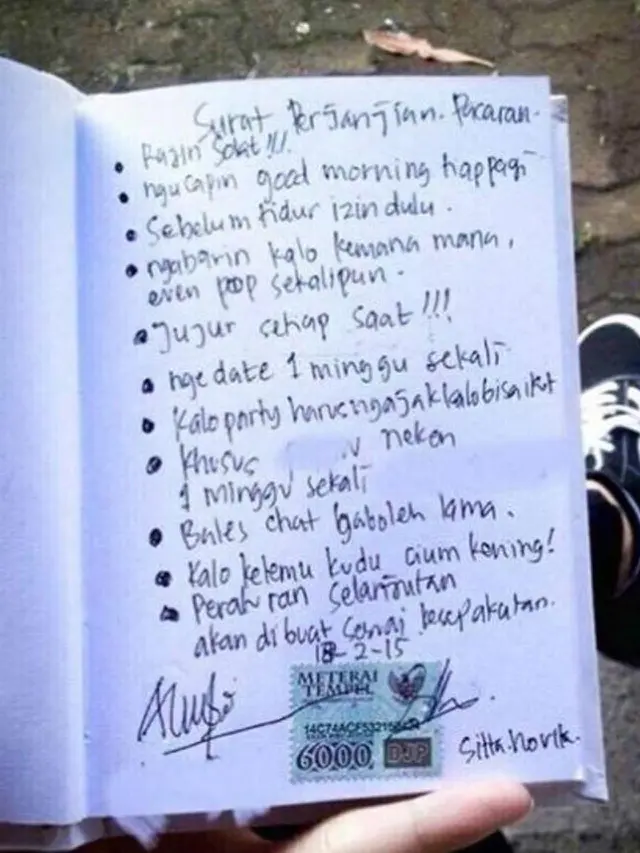 Surat Perjanjian. Pacaran.
• Rajin Solat!!!
• ngucapin good morning happagi
• Sebelum tidur izin dulu.
• ngabarin kalo kemana mana,
even poop sekalipun.
• Jujur setiap saat!!!
• ngedate 1 minggu sekali
• Kalo party harus ngajak kalo bisa ikut
• Khusus nekon
1 minggu sekali
• Bales chat gaboleh lama.
• Kalo ketemu kudu cium kening!
• Peraturan selanjutan
akan dibuat sesuai kesepakatan.
18-2-15
METERAI
TEMPEL
6000 DJP
Sitta.Novita.